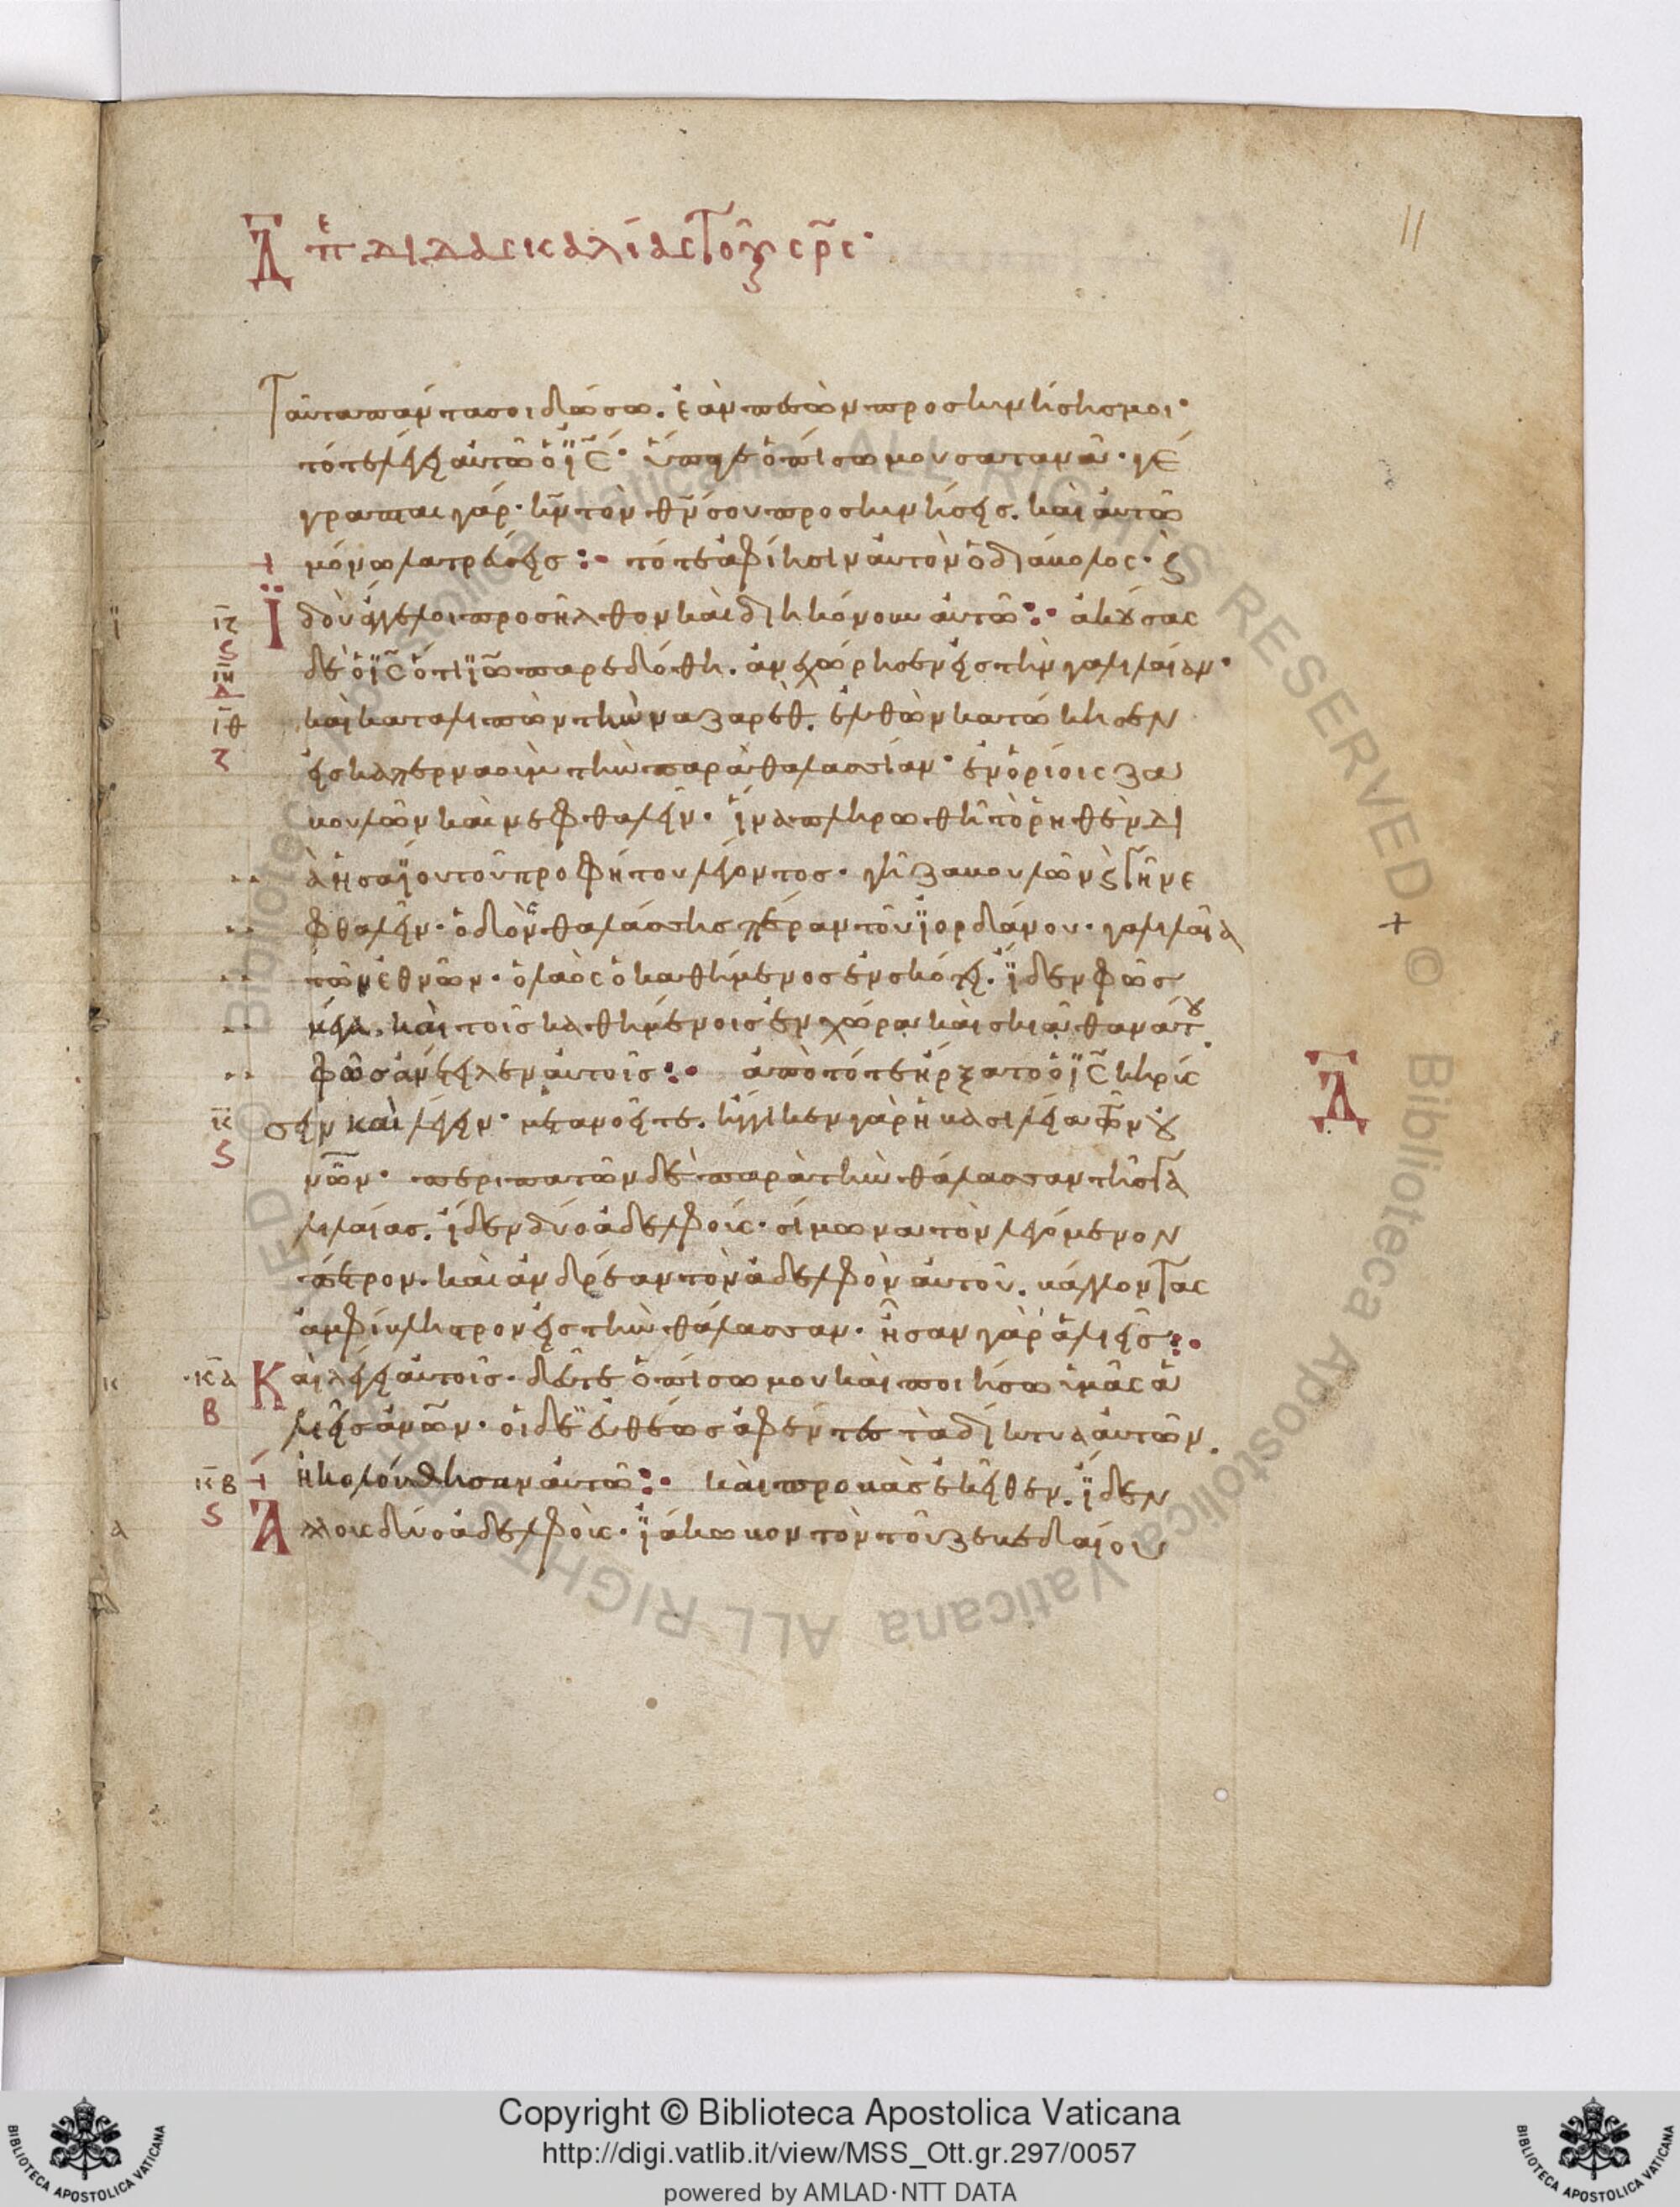 11
Δ πε διδασκαλίας τοῦ ϗσρσ·
Ταῦτα πάντα σοι δώσω. ἐὰν πεσὼν προσκυνήσησ μοι·
τότε λέγει αὐτῶ ὁ ϊς· ὕπαγε ὀπίσω μου σατανᾶ· γέ
γραπται γάρ· κν τὸν θν σου προσκυνήσεις. καὶ αὐτῶ
μόνω λατρεύσεις: τότε ἀφίησιν αὐτὸν ὁ διάβολος· ϗ
ϊδοὺ ἄγγελοι προσῆλθον καὶ διηκόνουν αὐτῶ: ἀκούσας
δὲ ὁ ϊς ὅτι ϊω παρεδόθη. ἀνεχώρησεν εἰς τὴν γαλιλαίαν·
καὶ καταλιπὼν τὴν ναζαρέθ. ἐλθὼν κατώκησεν
εἰς καπερναοὺμ τὴν παραθαλασσίαν· ἐν ὁρίοις ζα
βουλὼν καὶ νεφθαλείμ· ἵνα πληρωθῆ τὸ ῥηθὲν δι
ὰ ἡσαΐου τοῦ προφήτου λέγοντος· γῆ ζαβουλὼν ϗ γῆ νε
φθαλείμ· ὁδὸν θαλάσσης πέραν τοῦ ϊορδάνου· γαλιλαία
τῶν ἐθνῶν· ὁ λαὸς ὁ καθήμενος ἐν σκότει. ϊδεν φῶς
μέγα. καὶ τοῖς καθημένοις ἐν χώρα καὶ σκιᾶ θανάτου
φῶς ἀνέτειλεν αὐτοῖς: ἀπὸ τότε ἤρξατο ὁ ϊς κηρύς
σειν καὶ λέγειν· μετανοεῖτε. ἤγγικεν γὰρ ἡ βασιλεία τῶν οὐ
νῶν· περιπατῶν δὲ παρὰ τὴν θάλασσαν τῆς γα
λιλαίας. ἴδεν δύο ἀδελφούς· σίμωνα τὸν λεγόμενον
πέτρον. καὶ ἀνδρέαν τὸν ἀδελφὸν αὐτοῦ. βάλλοντας
ἀμφίβληστρον εἰς τὴν θάλασσαν· ἦσαν γὰρ ἁλιεῖς:
Καὶ λέγει αὐτοῖς· δεῦτε ὀπίσω μου καὶ ποιήσω ὑμᾶς ἁ
λιεῖς ἀνων· οἱ δὲ εὐθέως ἀφέντες τὰ δίκτυα αὐτῶν.
ἠκολούθησαν αὐτῶ: καὶ προβὰς ἐκεῖθεν. ϊδεν
Ἄλλους δύο ἀδελφούς· ϊάκωβον τὸν τοῦ ζεβεδαίου
ιζ
ϛ
ιη
δ
ιθ
ζ
κ
ϛ
κα
β
κβ
ϛ
Δ
Copyright © Biblioteca Apostolica Vaticana
http://digi.vatlib.it/view/MSS_Ott.gr.297/0057
powered by AMLAD·NTT DATA
BIBLIOTECA APOSTOLICA VATICANA
BIBLIOTECA APOSTOLICA VATICANA